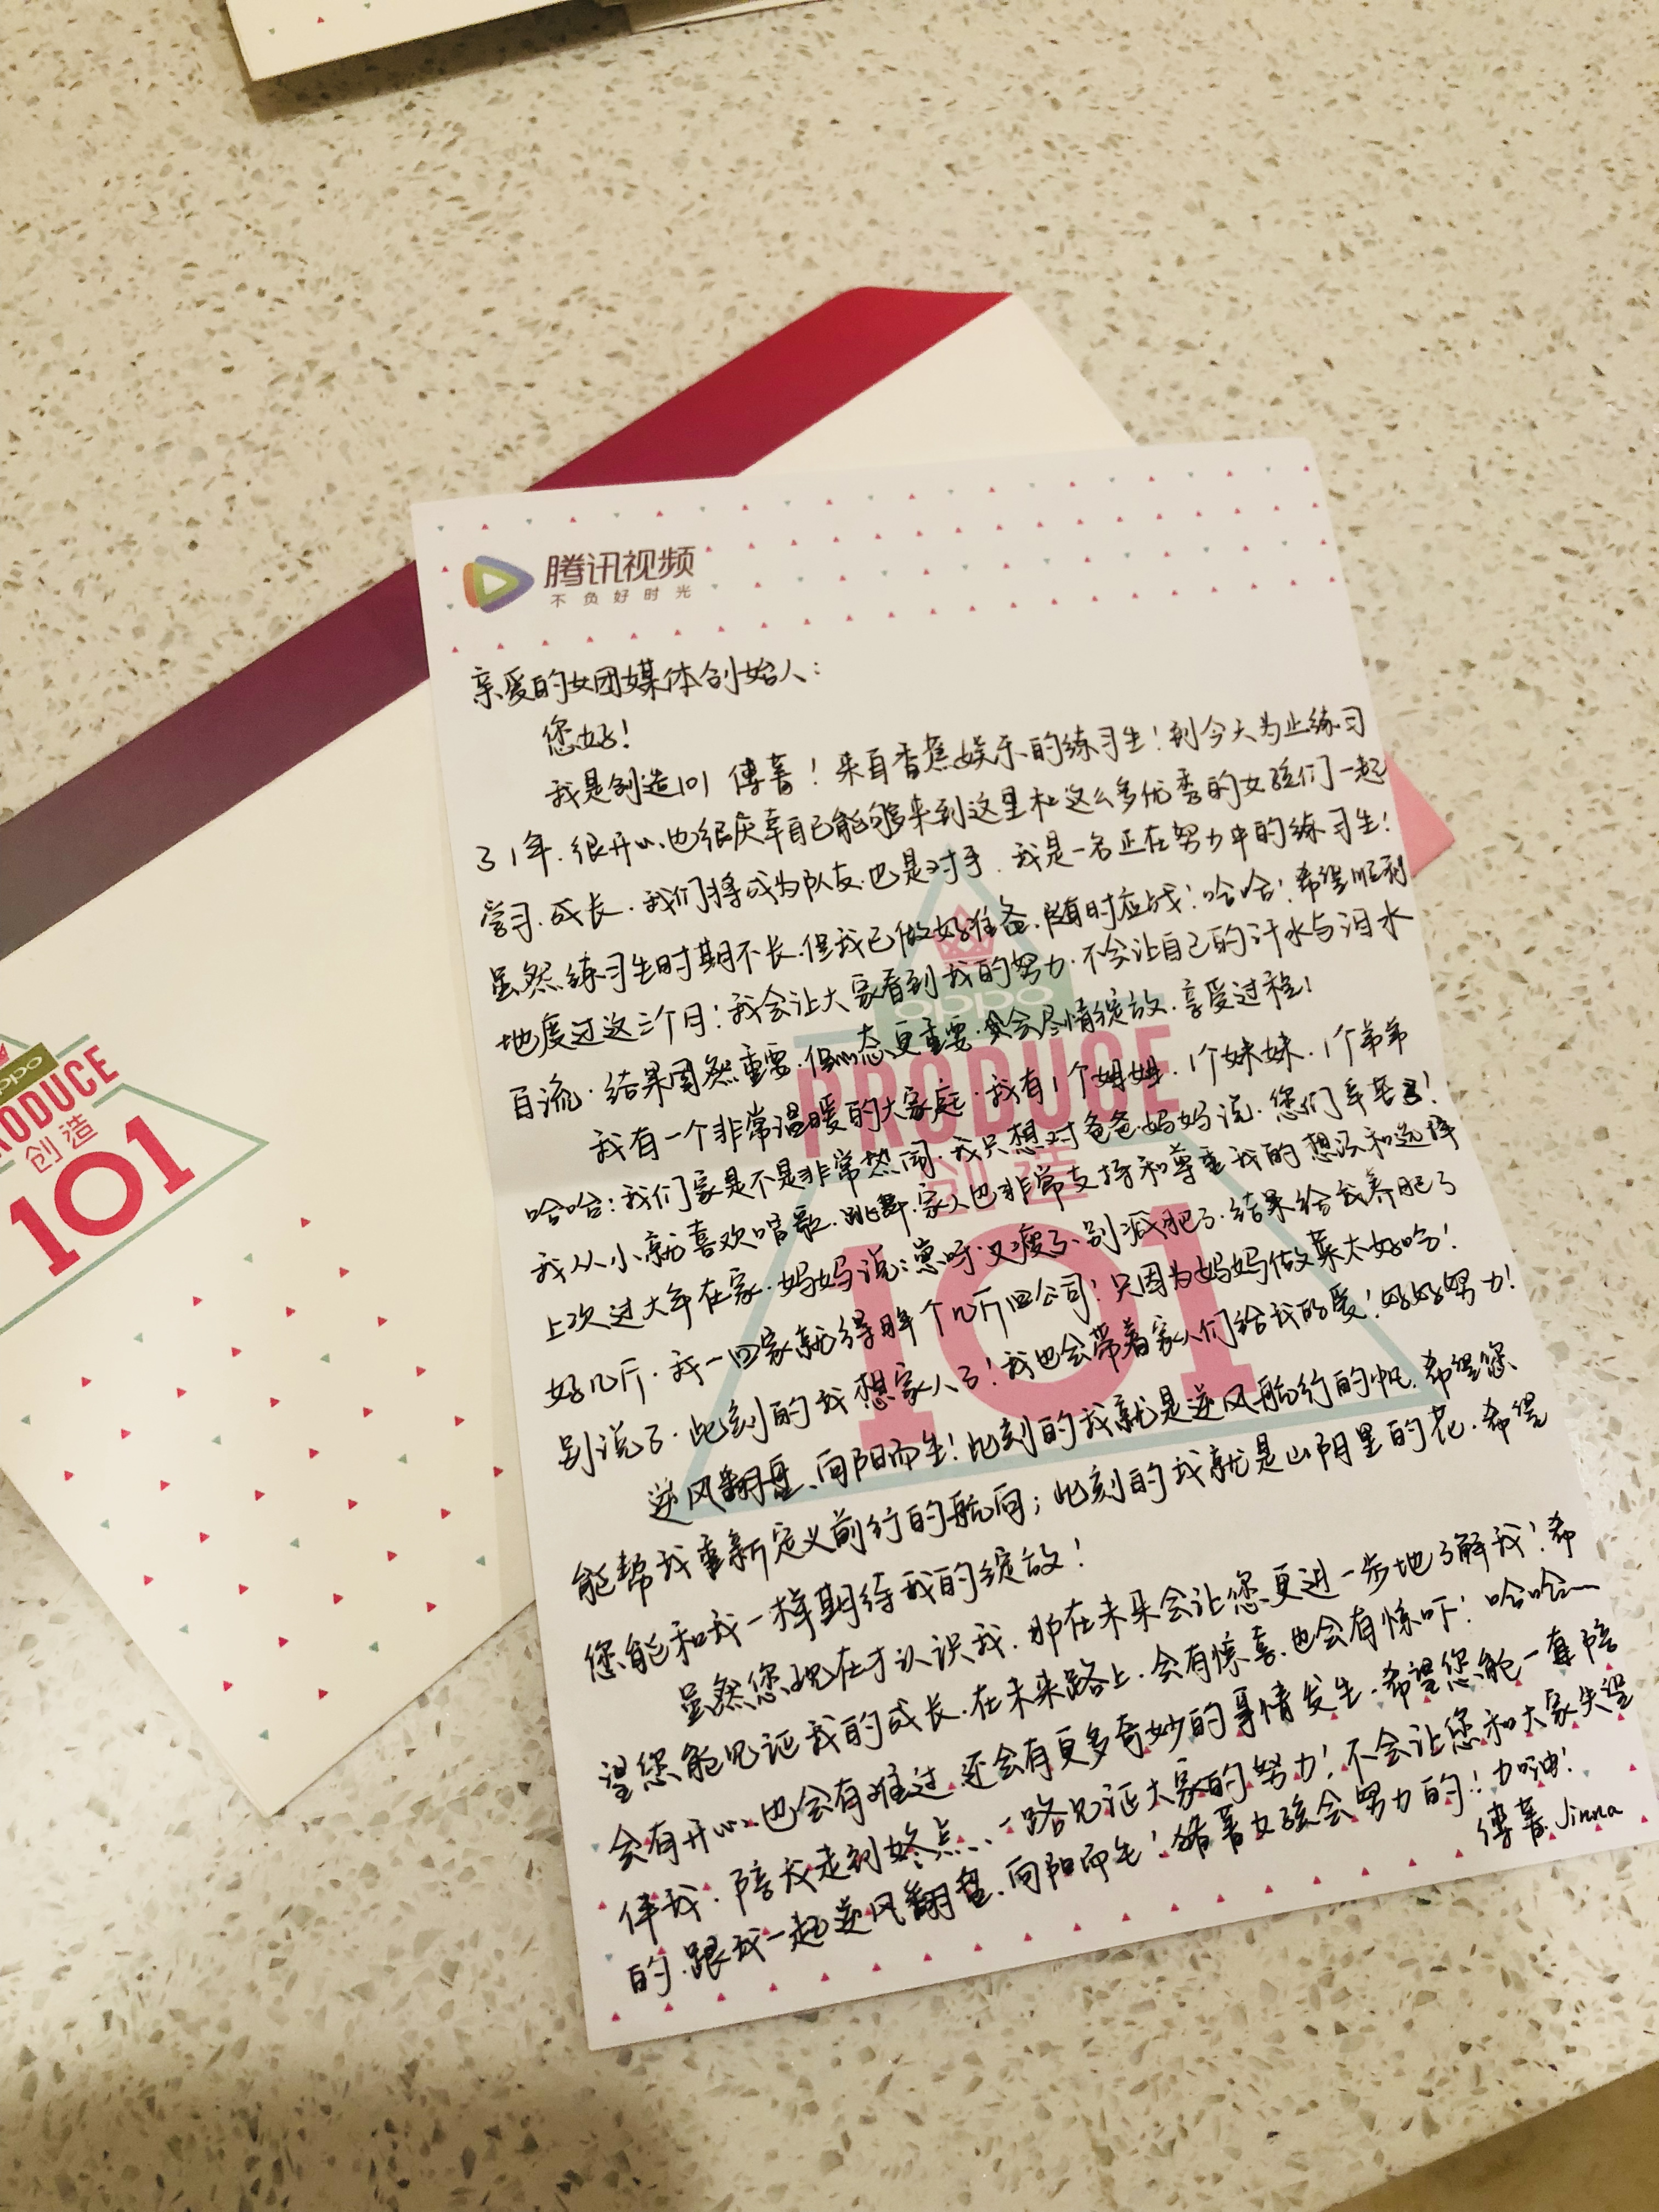 腾讯视频
不负好时光
亲爱的女团媒体创始人：
您好！
我是创造101 傅菁！来自香蕉娱乐的练习生！到今天为止练习
了1年.很开心.也很庆幸自己能够来到这里和这么多优秀的女孩们一起
学习.成长.我们将成为队友.也是对手.我是一名正在努力中的练习生！
虽然练习生时期不长.但我已做好准备.随时应战！哈哈！希望顺利
地度过这三个月！我会让大家看到我的努力.不会让自己的汗水与泪水
白流.结果固然重要.但心态更重要.我会尽情绽放.享受过程！
我有一个非常温暖的大家庭.我有1个姐姐.1个妹妹.1个弟弟
哈哈！我们家是不是非常热闹.我只想对爸爸妈妈说.您们辛苦了！
我从小就喜欢唱歌.跳舞.家人也非常支持和尊重我的想法和选择
上次过大年在家.妈妈说：崽呀又瘦了.别减肥了.结果给我养肥了
好几斤.我一回家就得胖个几斤回公司！只因为妈妈做菜太好吃！
别说了.此刻的我想家人了！我也会带着家人们给我的爱！好好努力！
逆风翻盘、向阳而生！此刻的我就是逆风航行的帆.希望您
能帮我重新定义前行的航向；此刻的我就是山阴里的花.希望
您能和我一样期待我的绽放！
虽然您现在才认识我.那在未来会让您更进一步地了解我！希
望您能见证我的成长.在未来路上.会有惊喜.也会有惊吓！哈哈~
会有开心.也会有难过.还会有更多奇妙的事情发生.希望您能一直陪
伴我.陪我走到终点、一路见证大家的努力！不会让您和大家失望
的.跟我一起逆风翻盘.向阳而生！猪菁女孩会努力的！加油！
傅菁.Jinna
OPPO
PRODUCE
创造
101
OPPO
RODUCE
创造
101